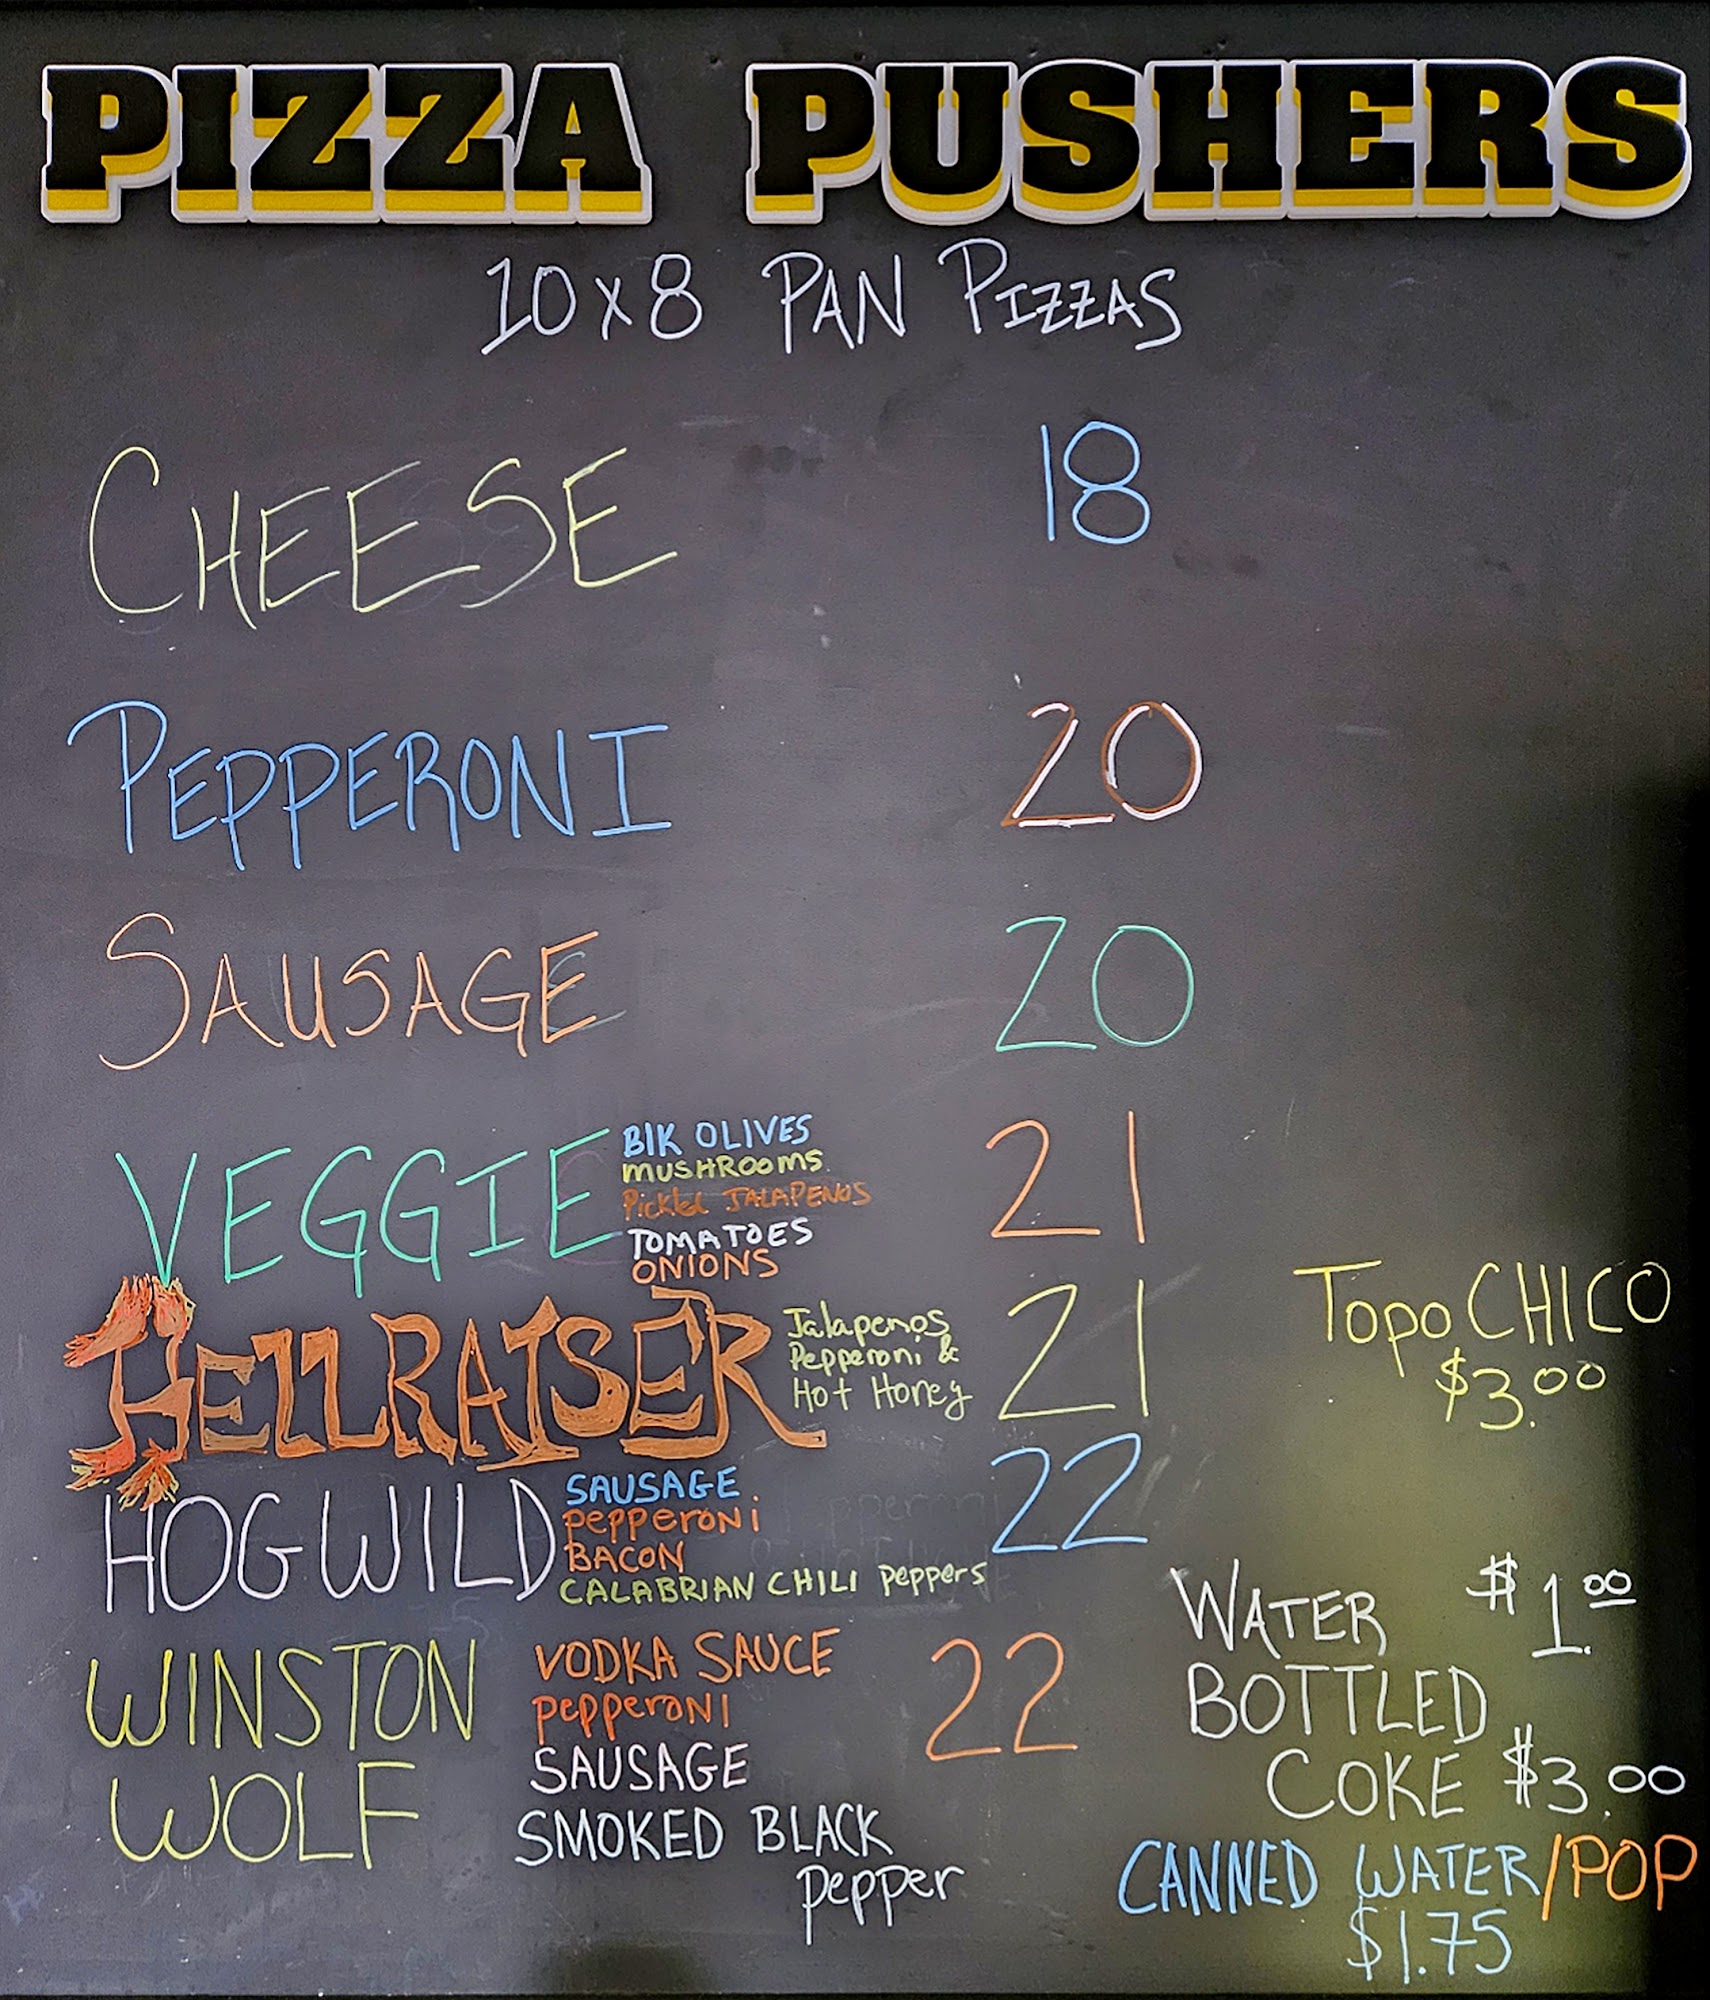 PIZZA PUSHERS
10x8 PAN PIZZAS
CHEESE 18
PEPPERONI 20
SAUSAGE 20
VEGGIE 21
BlK OLIVES
MUSHROOMS
Pickled JALAPENOS
TOMATOES
ONIONS
HELLRAISER 21
Jalapenos
Pepperoni &
Hot Honey
HOG WILD 22
SAUSAGE
pepperoni
BACON
CALABRIAN CHILI peppers
WINSTON
WOLF
VODKA SAUCE
pepperoni
SAUSAGE
SMOKED BLACK
pepper
22
Topo CHICO
$3.00
WATER $1.00
BOTTLED
COKE $3.00
CANNED WATER/POP
$1.75